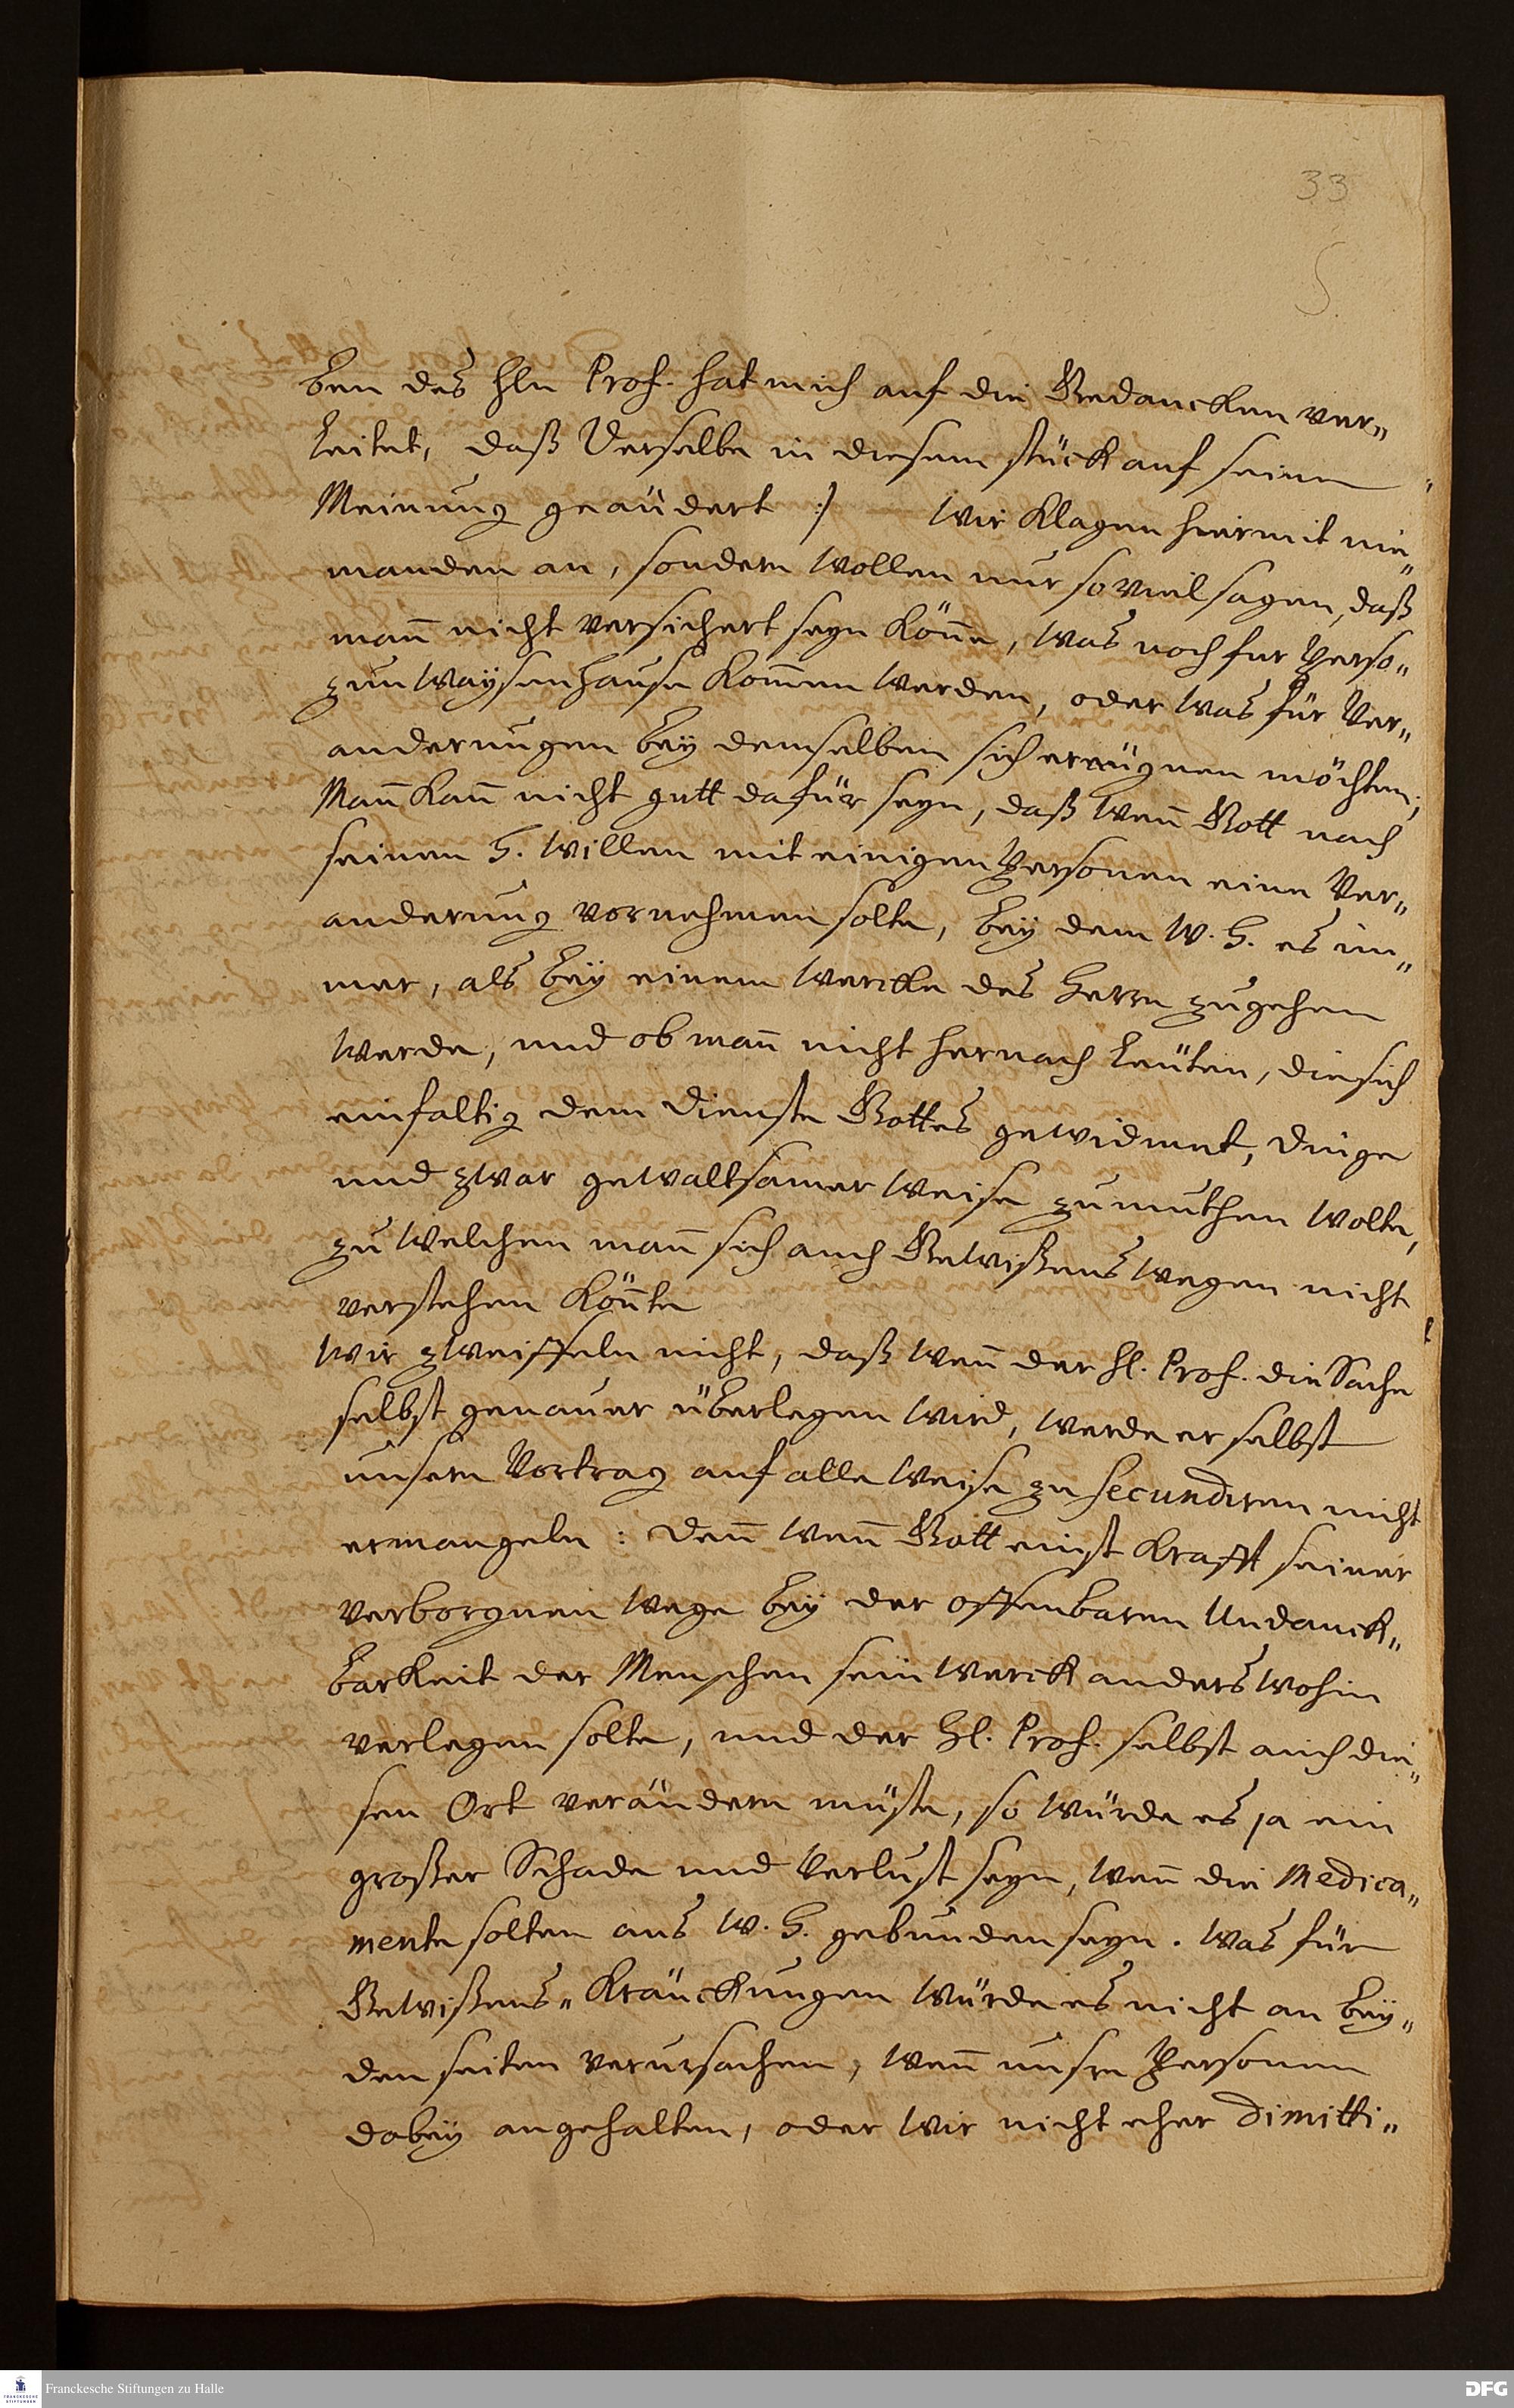 33
5
ben des Hln Prof. hat mich auf die Gedancken ver„
leitet, daß Derselbe in diesem stück auf seine
Meinung geändert :/ Wir klagen hiermit nie„
manden an, sondern wollen nur so viel sagen, daß
man̄ nicht versichert seyn kön̄e, was noch fur Perso„
zum Waysenhause kom̄en werden, oder was für Ver„
anderungen bey demselben sich ereügnen möchten;
Man̄ kan̄ nicht gutt dafür seyn, daß wen̄ Gott nach
seinem H. Willen mit einigen Personen eine Ver„
anderung vornehmen solte, bey dem W. H. es im„
mer, als bey einem Wercke des Herrn zugehen
werde, und ob man̄ nicht hernach leüten, die sich
einfaltig dem Dienste Gottes gewidmet, Dinge
und zwar gewaltsamer Weise zumuthen wolte,
zu welchen man̄ sich auch Gewißens wegen nicht
verstehen kön̄te
Wir zweiffeln nicht, daß wen̄ der Hl. Prof. die Sache
selbst genauer überlegen wird, werde er selbst
unsern Vortrag auf alle Weise zu secundiren nicht
ermangeln: Den̄ wen̄ Gott einst Krafft seiner
verborgnen Wege bey der offenbaren Undanck„
barkeit der Menschen sein Werck anders wohin
verlegen solte, und der Hl. Prof. selbst auch die„
sen Ort verändern müste, so würde es ja ein
großer Schade und Verlust seyn, wen̄ die Medica„
mente solten ans W. H. gebunden seyn. Was für
Gewißens„ Kränckungen würde es nicht an bey„
den seiten verursachen, wen̄ unsre Personen
dabey angehalten, oder wir nicht eher dimitti„
Franckesche Stiftungen zu Halle
FRANCKESCHE STIFTUNGEN
DFG